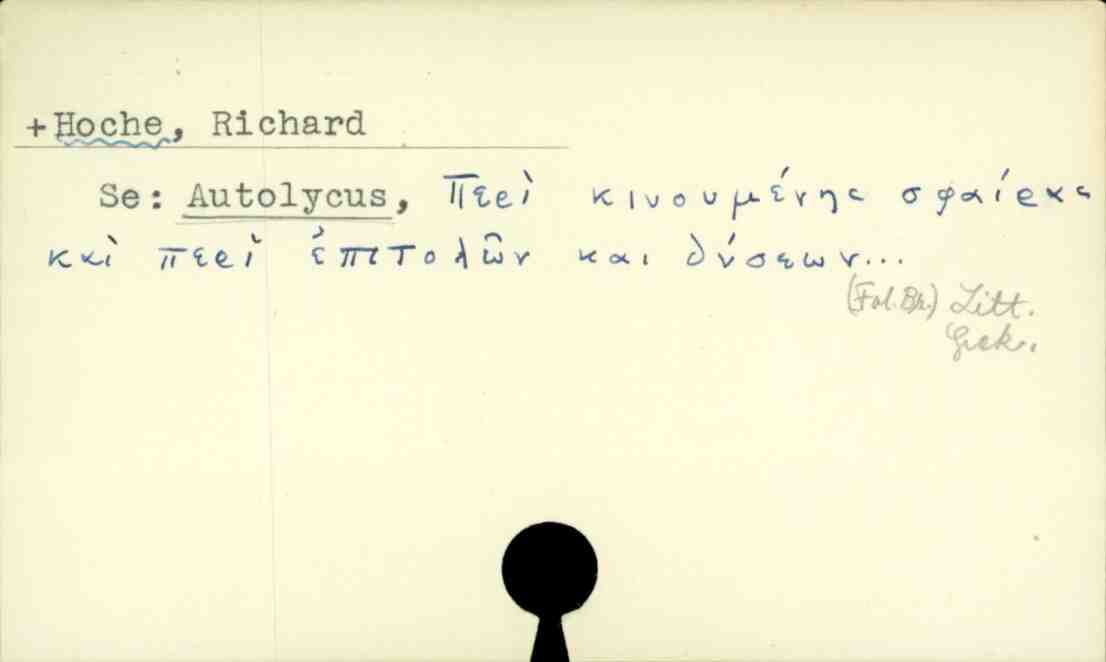 +Hoche, Richard
Se: Autolycus, Περὶ κινουμένης σφαίρας
καὶ περὶ ἐπιτολῶν και δύσεων...
(Fol. Br.) Litt.
Grek.